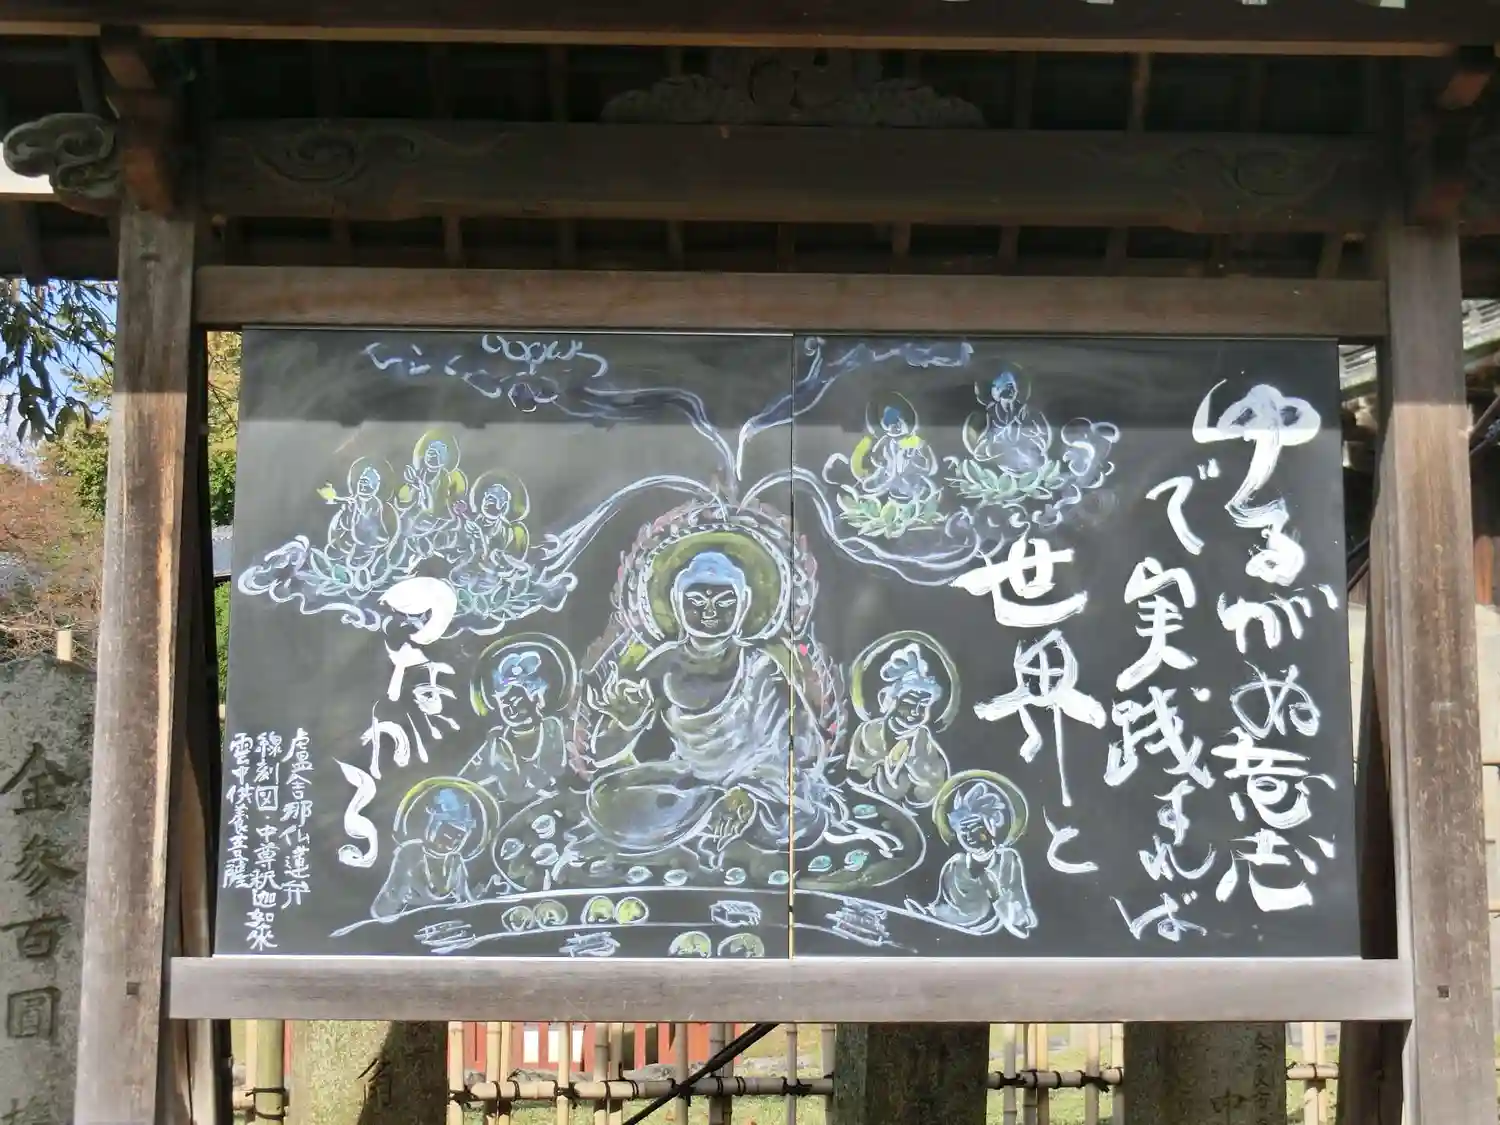 ゆるがぬ意志
で実践すれば
世界と
つながる
盧舎那仏蓮弁
線刻図・中尊釈迦如来
雲中供養菩薩
金参百圓